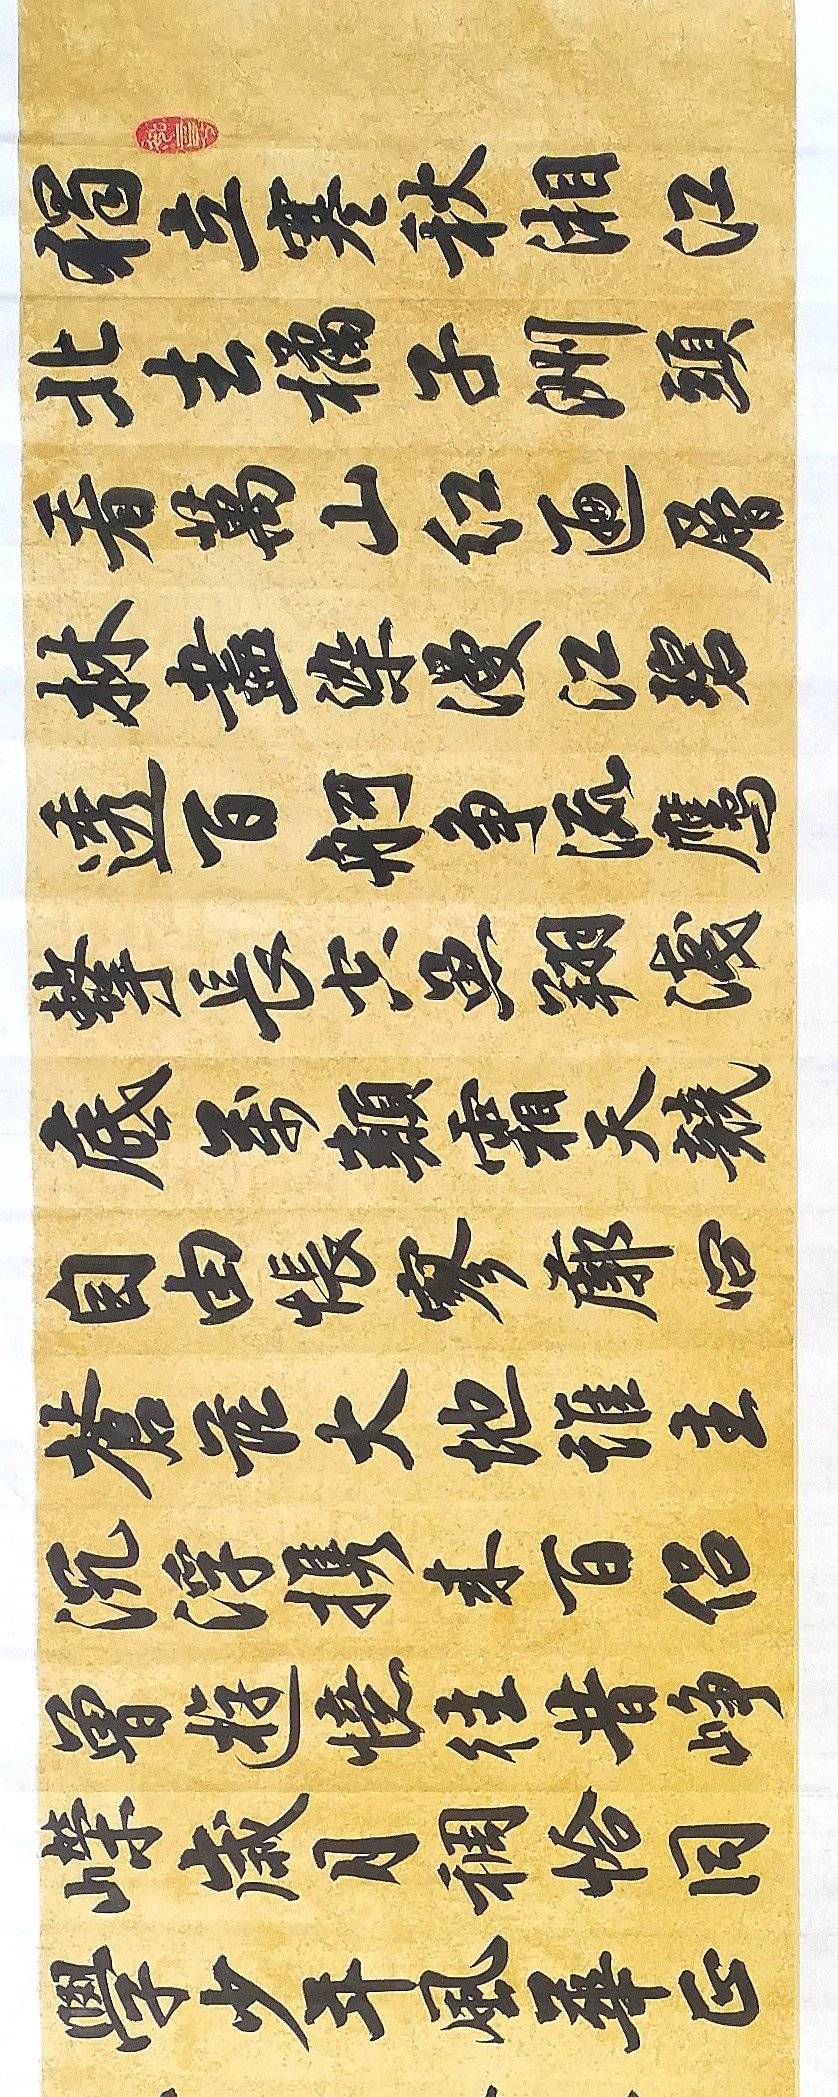 獨立寒秋湘江
北去橘子洲頭
看萬山紅遍層
林盡染漫江碧
透百舸爭流鷹
擊長空魚翔淺
底萬類霜天競
自由悵寥廓問
蒼茫大地誰主
沉浮攜來百侶
曾遊憶往昔崢
嶸歲月稠恰同
學少年風華正